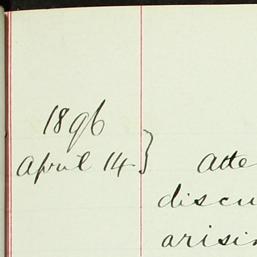 1896
April 14 } Atte
discu
arisin